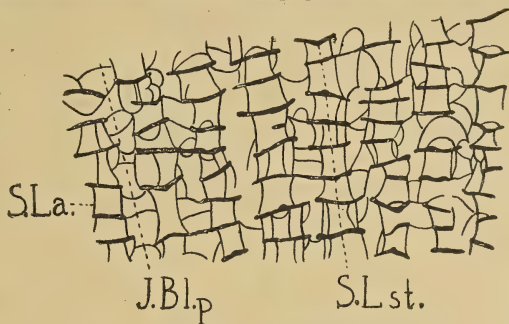 S.La.
J.Bl.p
S.Lst.